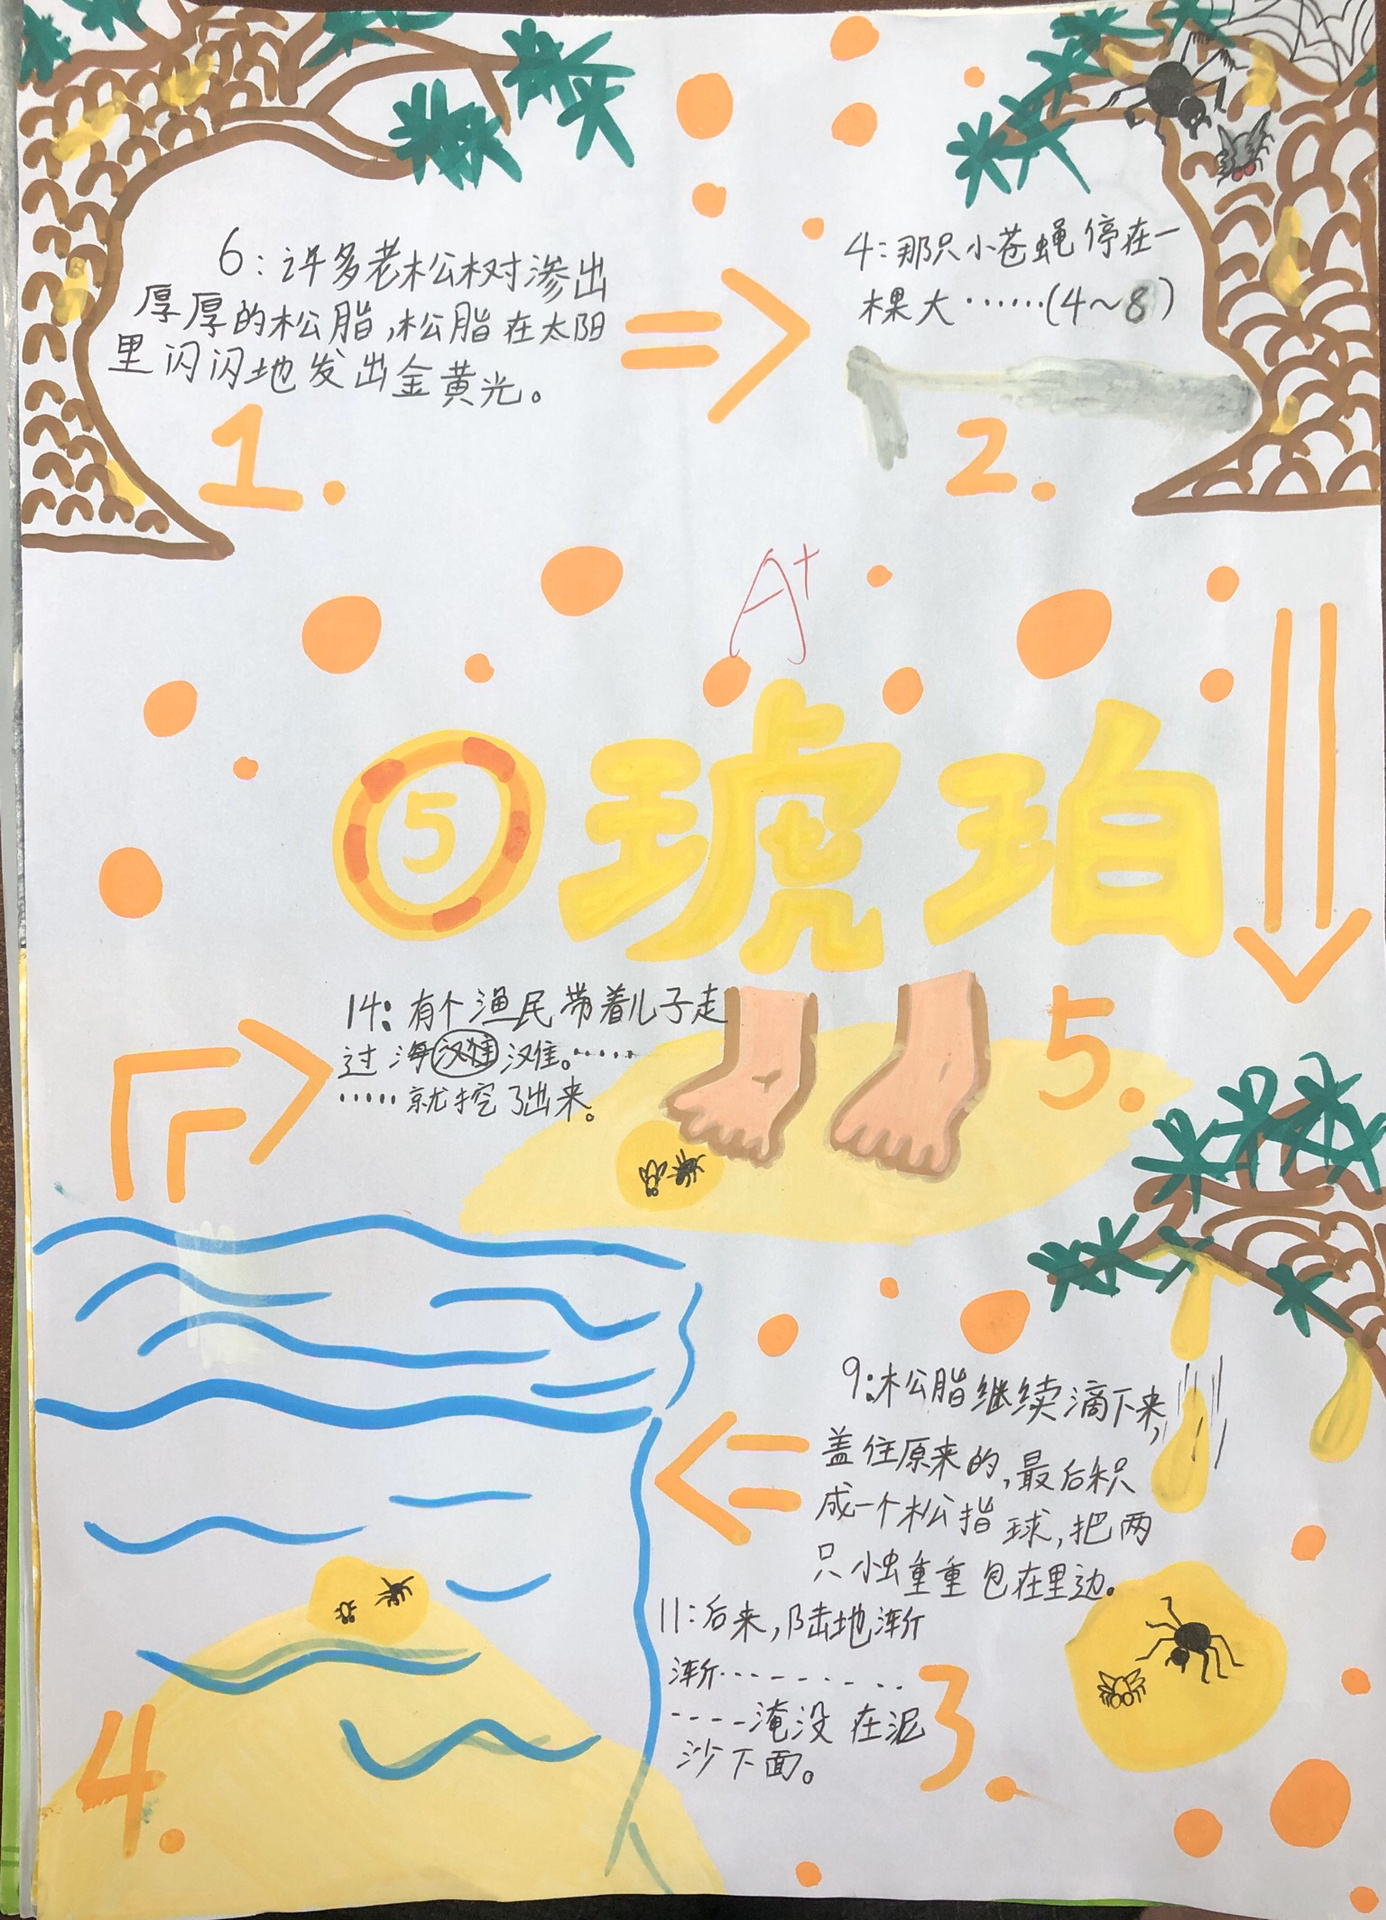 6：许多老松树渗出
厚厚的松脂，松脂在太阳
里闪闪地发出金黄光。
1.
4：那只小苍蝇停在一
棵大……(4~8)
2.
A+
⑤琥珀
14：有个渔民带着儿子走
过海汉难滩。……
……就挖了出来。
5.
9：松脂继续滴下来，
盖住原来的，最后积
成一个松指球，把两
只小虫重重包在里边。
11：后来，陆地渐
渐---------
----淹没在泥
沙下面。
3.
4.